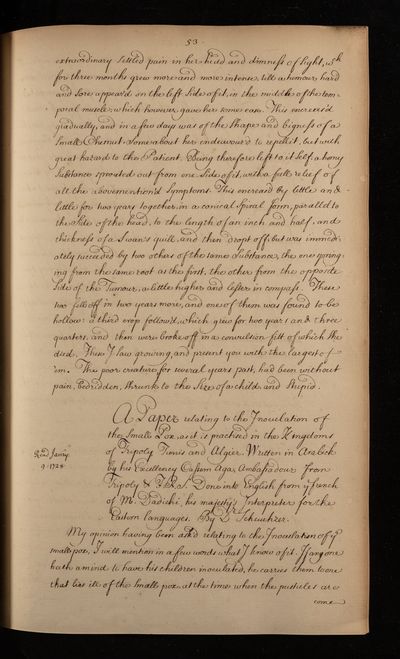 53
extraordinary settled pain in her head and dimness of sight, wch
for three months grew more and more intense, till a humour hard
and sore appear'd on the left side of it, in the middle of the tem-
poral muscle which however gave her some ease. This encreas'd
gradually, and in a few days was of the shape and bigness of a
small Chesnut. Some about her endeavour'd to repell it, but with
great hazard to the Patient. Being therefore left to it self a horny
substance sprouted out from one side of it, with a full relief of
all the abovemention'd symptoms. This encreas'd by little and
little for two years together in a conical spiral form, parallel to
the side of the head, to the length of an inch and half, and
thickness of a Swan's quill, and then dropt off; but was immedi-
ately succeeded by two others of the same substance, the one spring-
ing from the same root as the first, the other from the opposite
side of the Tumour, a little higher and lesser in compass. These
two fell off in two years more, and one of them was found to be
hollow: a third crop follow'd, which grew for two years and three
quarters, and then were broke off in a convulsion fitt of which she
died. These I saw growing, and present you with the largest of
'em. The poor creature for several years past, had been without
pain, bedridden, shrunk to the size of a child, and stupid.
A Paper relating to the Inoculation of
the Small Pox, as it is practised in the Kingdoms
of Tripoly Tunis and Algier. Written in Arabick
Read Janry
9. 1728
by his Excellency Cassem Aga, Ambassadour from
Tripoly & F.R.S. Done into English from ye French
of Mr. Dadichi, his majesty's Interpreter for the
Eastern languages. By Dr Scheuchzer.
My opinion having been ask'd relating to the Inoculation of ye
small pox, I will mention in a few words what I know of it. If any one
hath a mind to have his children inoculated, he carries them to one
that lies ill of the small pox at the time when the pustules are
come